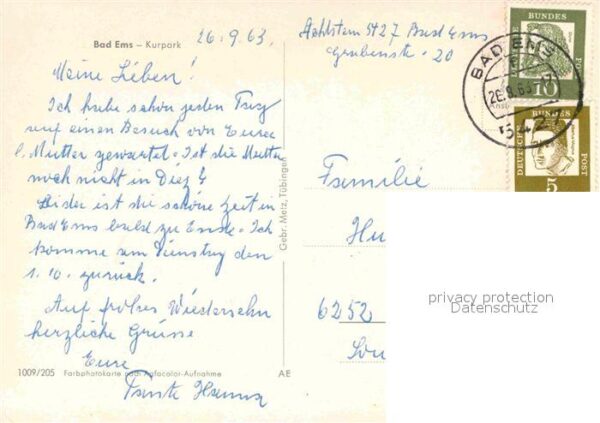 Bad Ems – Kurpark
26.9.63.
Meine Lieben!
Ich habe schon jeden Tag
auf einen Besuch von Eurer
l. Mutter gewartet. Ist die Mutter
noch nicht in Diez?
Leider ist die schöne Zeit in
Bad Ems bald zu Ende. Ich
komme am Dienstag den
1.10. zurück.
Auf frohes Wiedersehn
herzliche Grüsse
Eure
Tante Hanna
1009/205 Farbphotokarte nach Agfacolor-Aufnahme AE
Gebr. Metz, Tübingen
5427 Bad Ems
Grabenstr. 20
DEUTSCHE BUNDESPOST
10
DEUTSCHE BUNDESPOST
5
BAD EMS
Familie
Hu
6252
privacy protection
Datenschutz